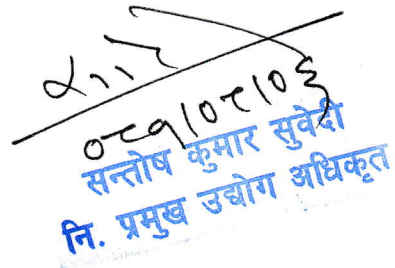 ०८१/०८/०६
सन्तोष कुमार सुवेदी
नि. प्रमुख उद्योग अधिकृत